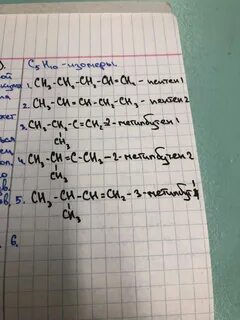 C₅H₁₀ - изомеры
1. CH₃-CH₂-CH₂-CH=CH₂ - пентен 1
2. CH₃-CH=CH-CH₂-CH₃ - пентен 2
3. CH₃-CH₂-C=CH₂-2-метилбутен 1
CH₃
4. CH₃-CH=C-CH₃-2-метилбутен 2
CH₃
5. CH₃-CH-CH=CH₂-3-метилбутен 1
CH₃
6.